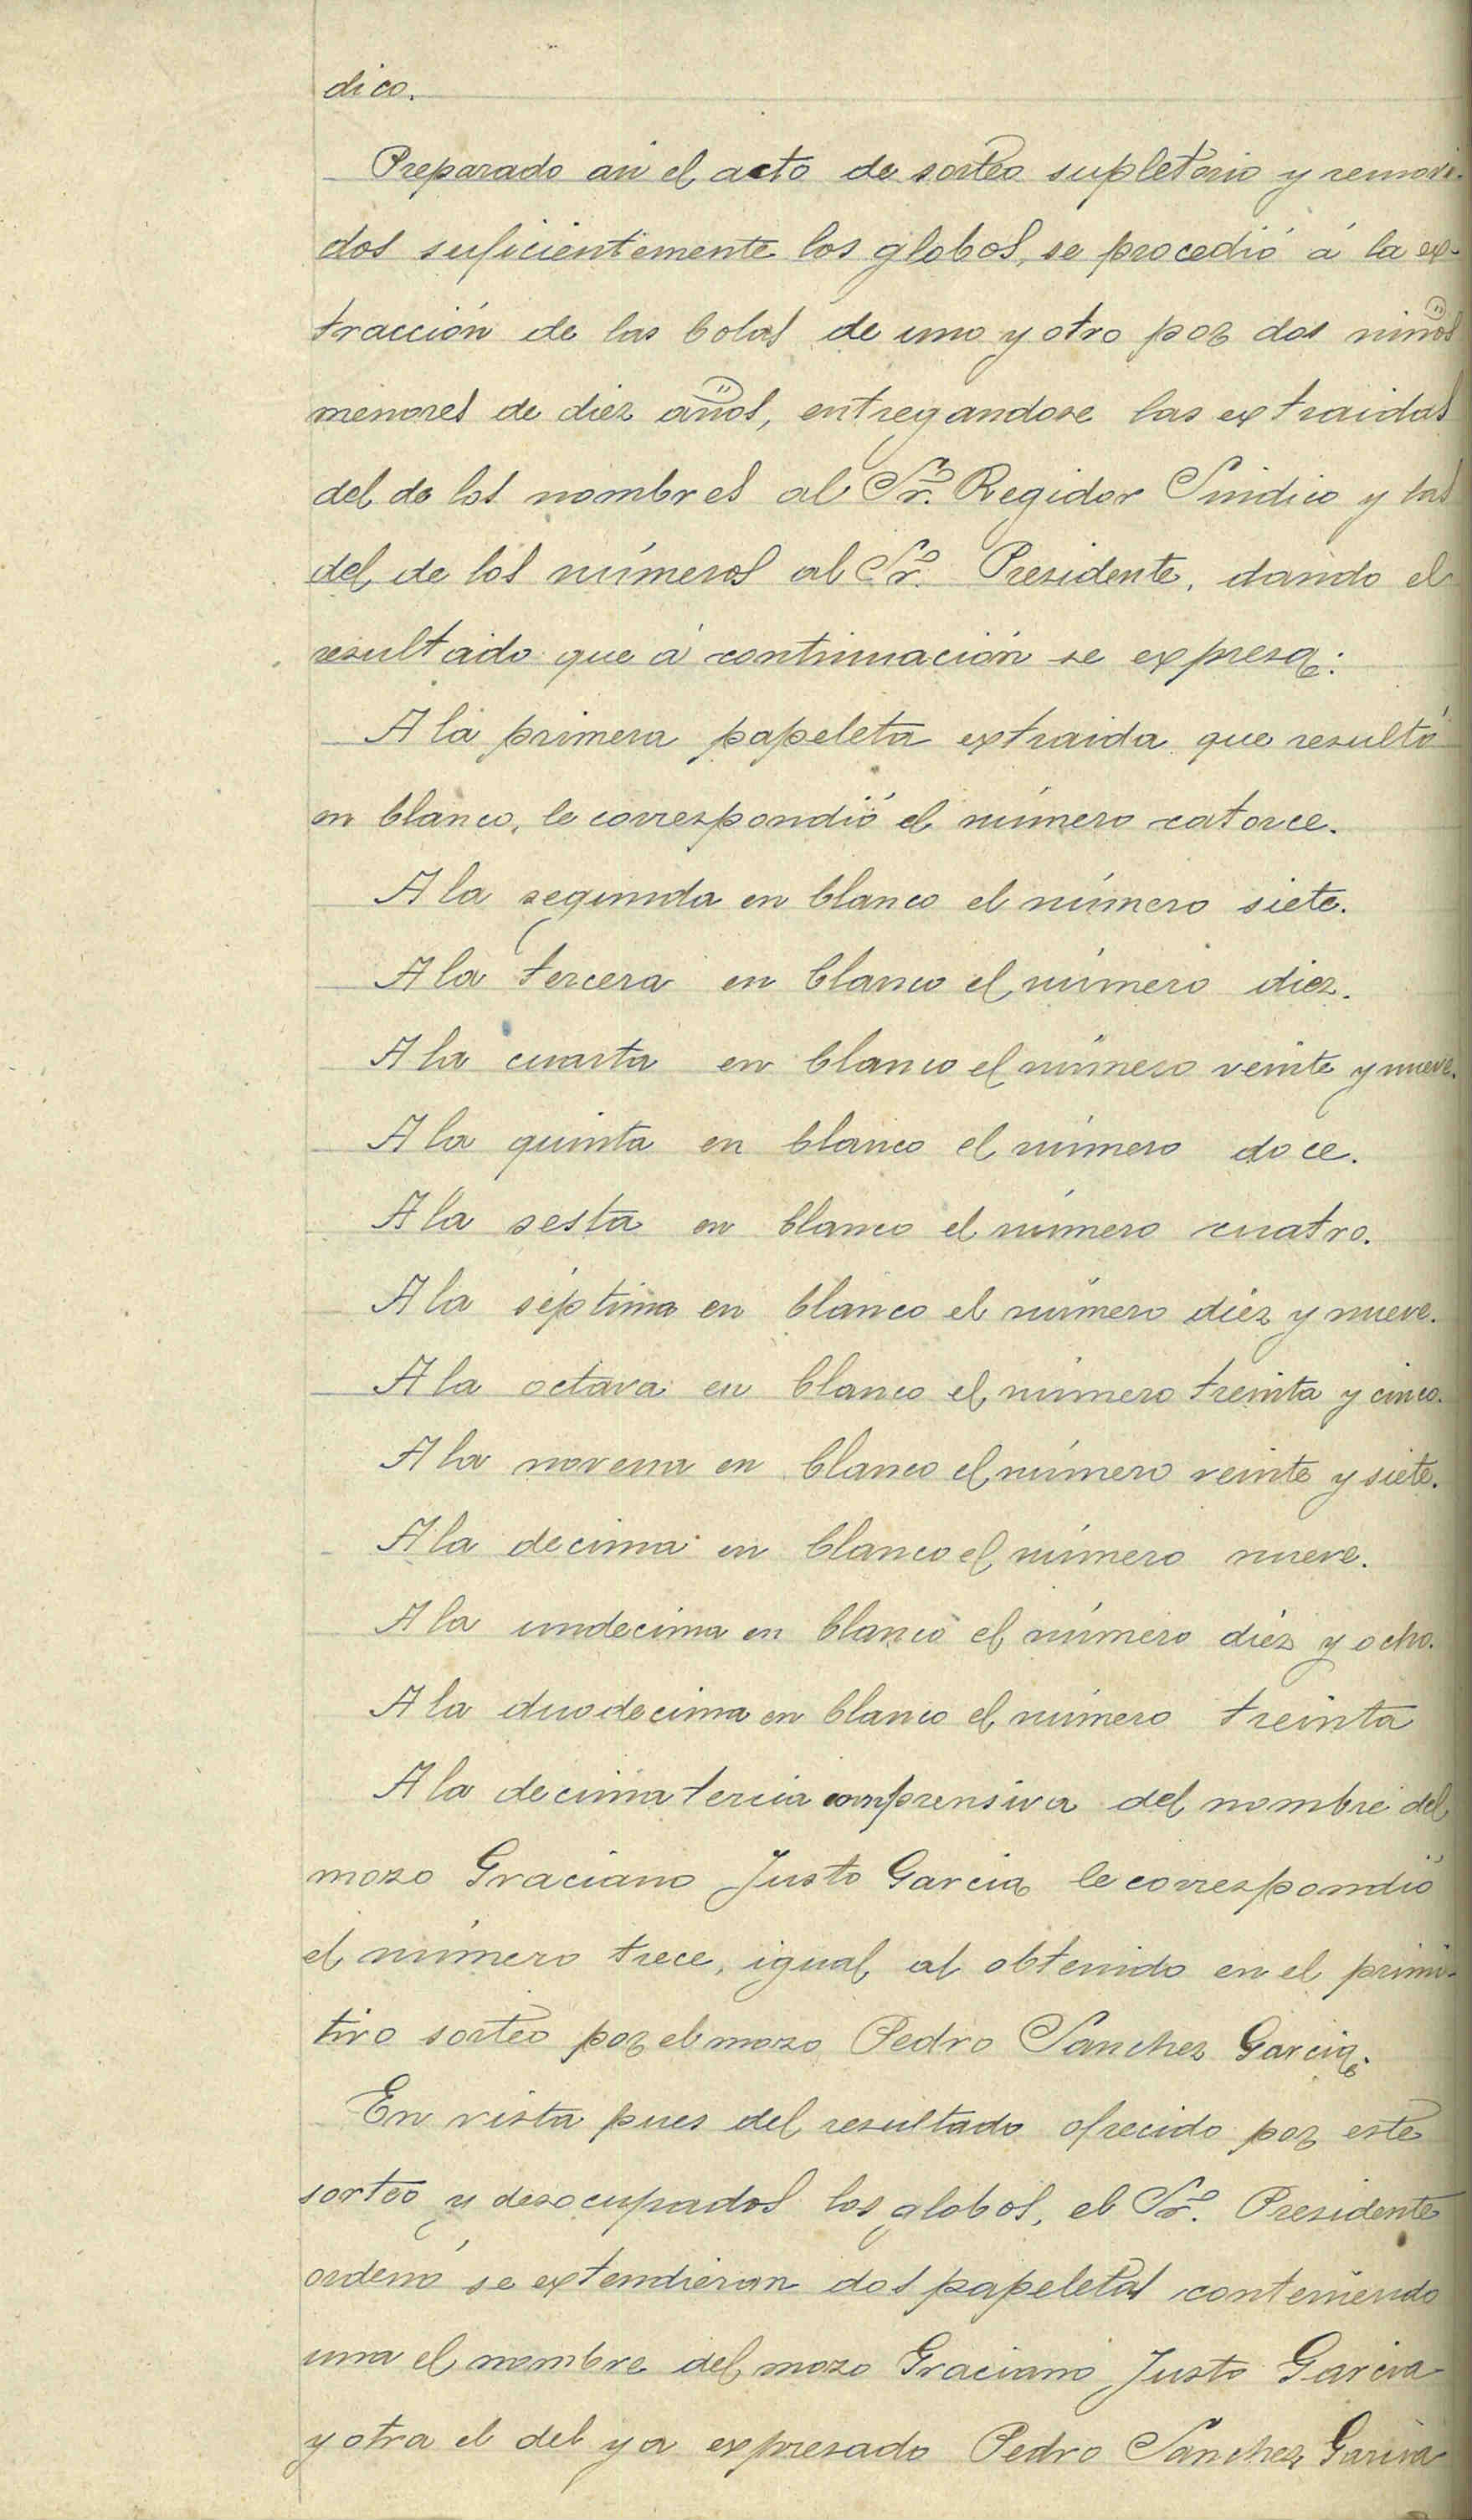 dico.
Preparado así el acto de sorteo supletorio y removi-
dos suficientemente los globos, se procedió á la ex-
tracción de las bolas de uno y otro por dos niños
menores de diez años, entregandose las extraidas
del de los nombres al Sr. Regidor Sindico y las
del de los números al Sr. Presidente, dando el
resultado que á continuación se expresa:
A la primera papeleta extraida que resultó
en blanco, le correspondió el número catorce.
A la segunda en blanco el número siete.
A la tercera en blanco el número diez.
A la cuarta en blanco el número veinte y nueve.
A la quinta en blanco el número doce.
A la sesta en blanco el número cuatro.
A la séptima en blanco el número diez y nueve.
A la octava en blanco el número treinta y cinco.
A la novena en blanco el número veinte y siete.
A la decima en blanco el número nueve.
A la undecima en blanco el número diez y ocho.
A la duodecima en blanco el número treinta
A la decima tercia comprensiva del nombre del
mozo Graciano Justo Garcia le correspondió
el número trece, igual al obtenido en el primi-
tivo sorteo por el mozo Pedro Sanchez Garcia.
En vista pues del resultado ofrecido por este
sorteo y desocupados los globos, el Sr. Presidente
ordenó se extendieran dos papeletas conteniendo
una el nombre del mozo Graciano Justo Garcia
y otra el del ya expresado Pedro Sanchez Garcia